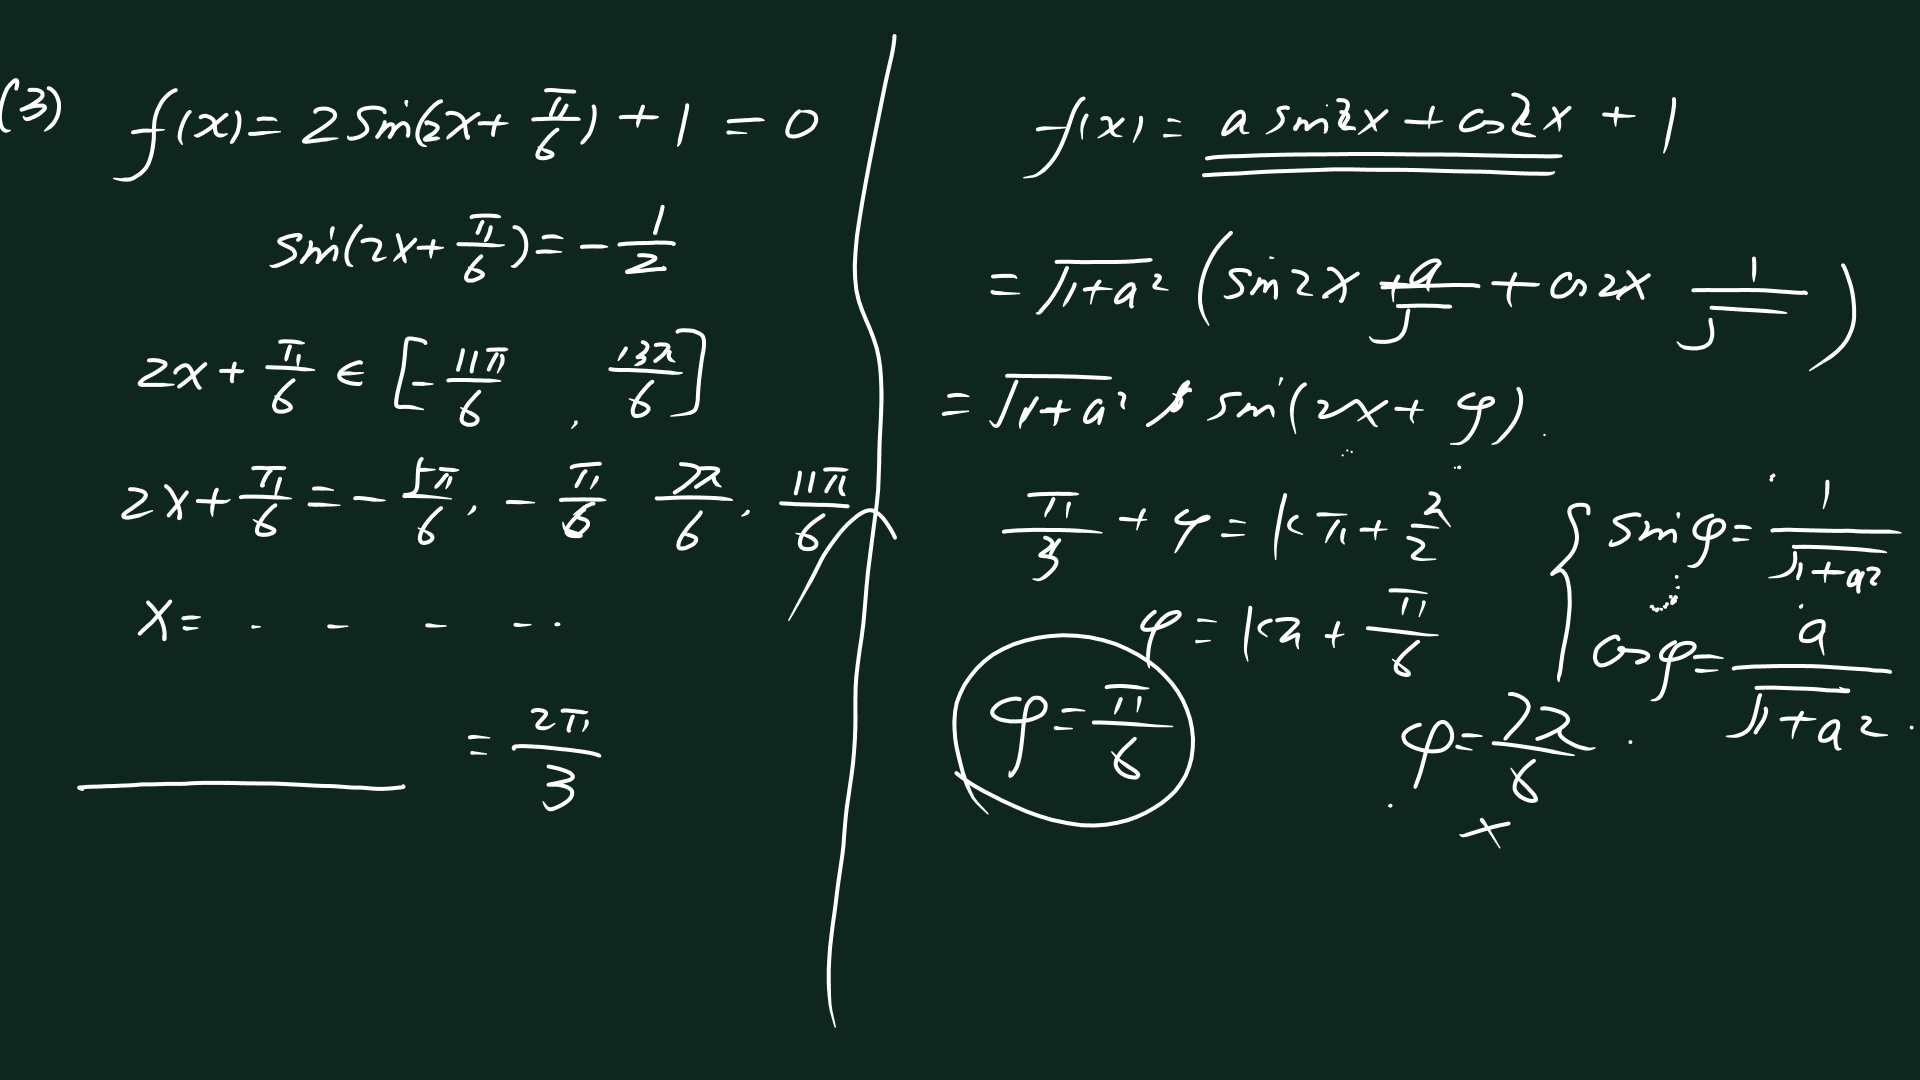 (3) f(x) = 2 sin(2x + π/6) + 1 = 0
sin(2x + π/6) = - 1/2
2x + π/6 ∈ [- 11π/6 , 13π/6]
2x + π/6 = - 5π/6 , - π/6 7π/6 , 11π/6
x = - - - - ·
= 2π/3
f(x) = a sin2x + cos2x + 1
= √1+a² (sin2x a/√ + cos2x 1/√ )
= √1+a² sin(2x + φ)
π/3 + φ = kπ + π/2
φ = kπ + π/6
φ = π/6
φ = 7π/6 .
×
{ sinφ = 1/√1+a²
cosφ = a/√1+a² .